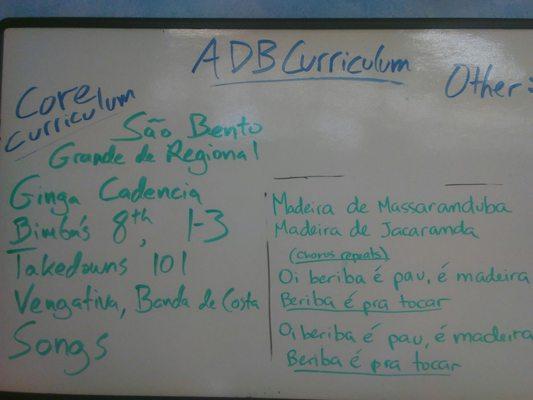 ADB Curriculum
Other:
Core
Curriculum
São Bento
Grande de Regional
Ginga Cadencia
Bimba's 8th, 1-3
Takedowns 101
Vengativa, Banda de Costa
Songs
Madeira de Massaranduba
Madeira de Jacaranda
(chorus repeats)
Oi beriba é pau, é madeira
Beriba é pra tocar
Oi beriba é pau, é madeira
Beriba é pra tocar